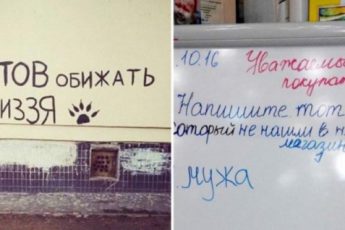 ТОВ ОБИЖАТЬ
ИЗЗЯ
.10.16 Уважаемы
покупат
Напишите тот
который не нашли в н
магазин
мужа